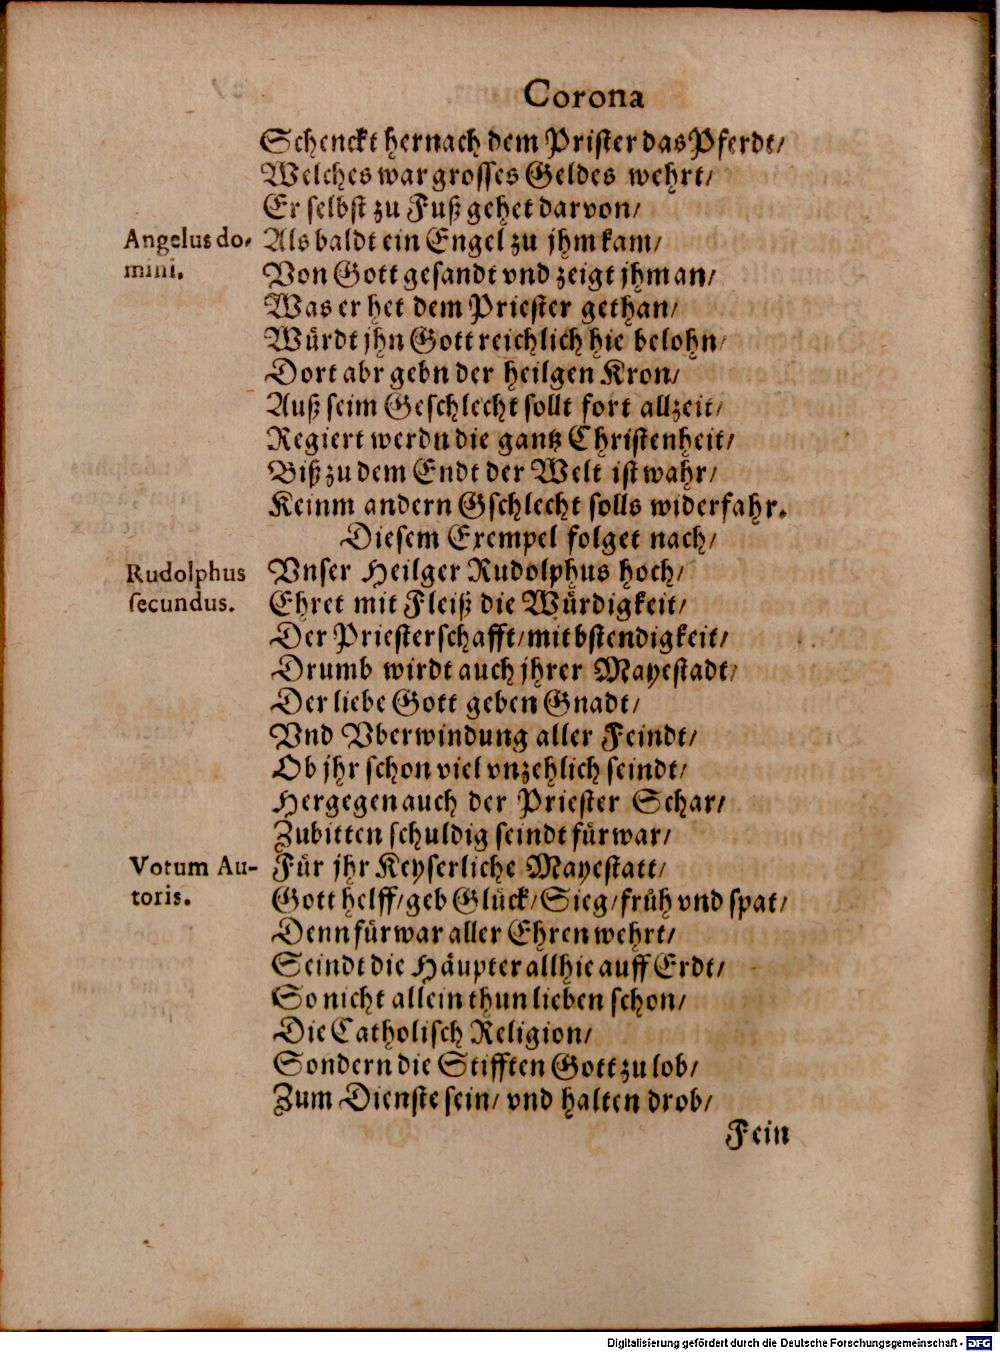 Corona
Schenckt hernach dem Prister das Pferdt/
Welches war grosses Geldes wehrt/
Er selbst zu Fuß gehet darvon/
Angelus do- Als baldt ein Engel zu jhm kam/
mini. Von Gott gesandt vnd zeigt jhm an/
Was er het dem Priester gethan/
Würdt jhn Gott reichlich hie belohn/
Dort abr gebn der heilgen Kron/
Auß seim Geschlecht sollt fort allzeit/
Regiert werdn die gantz Christenheit/
Biß zu dem Endt der Welt ist wahr/
Keinm andern Gschlecht solls widerfahr.
Diesem Exempel folget nach/
Rudolphus Vnser Heilger Rudolphus hoch/
secundus. Ehret mit Fleiß die Würdigkeit/
Der Priesterschafft/mit bstendigkeit/
Drumb wirdt auch jhrer Mayestadt/
Der liebe Gott geben Gnadt/
Vnd Vberwindung aller Feindt/
Ob jhr schon viel vnzehlich seindt/
Hergegen auch der Priester Schar/
Zubitten schuldig seindt fürwar/
Votum Au- Für jhr Keyserliche Mayestatt/
toris. Gott helff/geb Glück/Sieg/früh vnd spat/
Denn fürwar aller Ehren wehrt/
Seindt die Häupter allhie auff Erdt/
So nicht allein thun lieben schon/
Die Catholisch Religion/
Sondern die Stifften Gott zu lob/
Zum Dienste sein/ vnd halten drob/
Fein
Digitalisierung gefördert durch die Deutsche Forschungsgemeinschaft - DFG